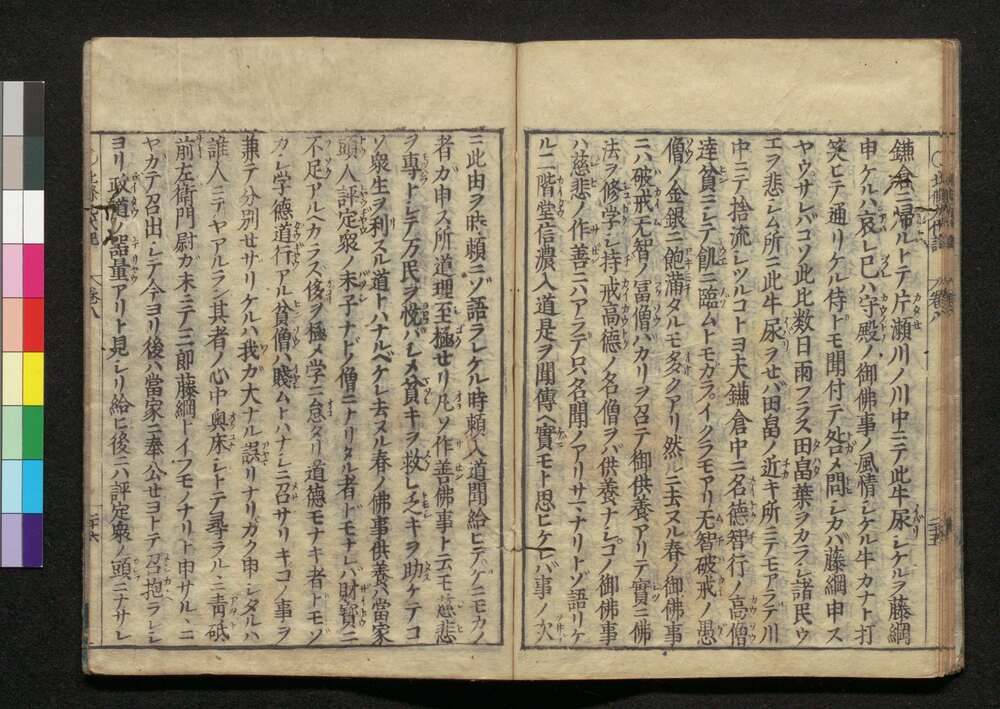 鎌倉ニ帰ルトテ片瀬川ノ川中ニテ此牛尿シケルヲ藤綱
申ケルハ哀レ巳ハ守殿ノ御佛事ノ風情シケル牛カナト打
笑ヒテ通リケル侍ドモ聞付テ咎メ問シカバ藤綱申ス
ヤウサレバコソ此比数日雨フラス田畠葉ヲカラシ諸民ウ
エヲ悲シム所ニ此牛尿ヲセバ田畠ノ近キ所ニテモアラデ川
中ニテ捨流シツルコトヨ夫鎌倉中ニ名德智行ノ高僧
達貧ニシテ飢ニ臨ムトモカライクラモアリ无智破戒ノ愚
僧ノ金銀ニ飽満タルモ多クアリ然ルニ去ヌル春ノ御佛事
ニハ破戒无智ノ冨僧バカリヲ召テ御供養アリテ實ニ佛
法ヲ修学シ持戒高德ノ名僧ヲバ供養ナシコノ御佛事
ハ慈悲ノ作善ニハアラデ只名聞ノアリサマナリトゾ語リケ
ル二階堂信濃入道是ヲ聞傳ヘ實モト思ヒケレバ事ノ次
ニ此由ヲ時頼ニゾ語ラレケル時頼入道聞給ヒテゲニモカノ
者ガ申ス所道理至極せリ凡ソ作善佛事ト云モ慈悲
ヲ専トシテ万民ヲ悦バシメ貧キヲ救ヒ乏キヲ助ケテコ
ソ衆生ヲ利スル道トハナルベケレ去ヌル春ノ佛事供養ハ當家
頭人評定衆ノ末子ナドノ僧ニナリタル者ドモナレバ財寳ニ
不足アルヘカラズ侈ヲ極メ学ニ怠タリ道德モナキ者ドモゾ
カシ学德道行アル貧僧ハ賤ムトハナシニ召サリキコノ事ヲ
兼テ分別セサリケルハ我カ大ナル誤リナリカク申シタルハ
誰人ニテヤアルラン其者ノ心中奥床シトテ尋ラルヽニ青砥
前左衛門尉ガ末ニテ三郎藤綱トイフモノナリト申サルヽニ
ヤカテ召出シテ今ヨリ後ハ當家ニ奉公せヨトテ召抱ラレシ
ヨリ政道ノ器量アリト見シリ給ヒ後ニハ評定衆ノ頭ニナサレ